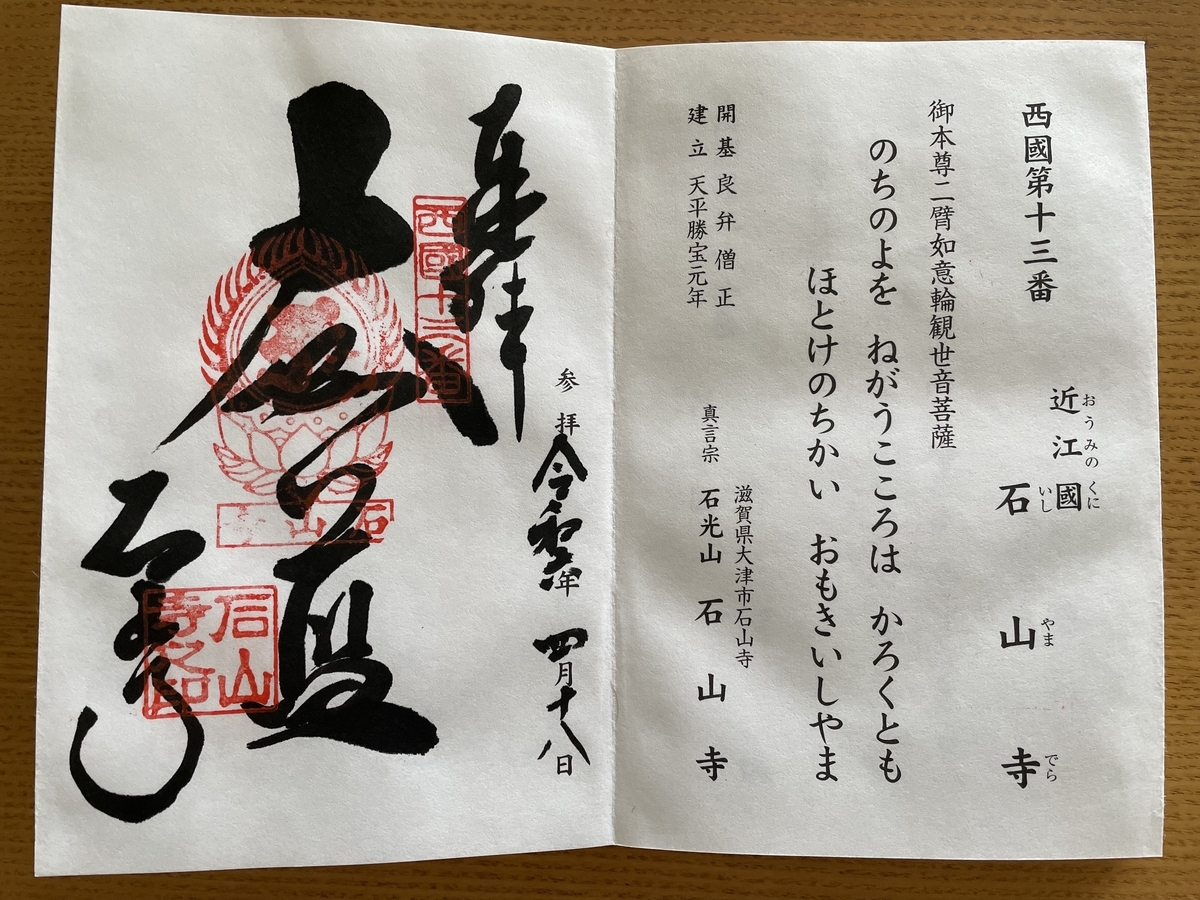 西國第十三番
近江國
おうみのくに
石山寺
いしやまでら
御本尊二臂如意輪観世音菩薩
のちのよを ねがうこころは かろくとも
ほとけのちかい おもきいしやま
開基良弁僧正
建立 天平勝宝元年
滋賀県大津市石山寺
真言宗 石光山 石山寺
奉拝
西國十三番
参拝
年 四月十八日
大悲殿
石山
石山寺